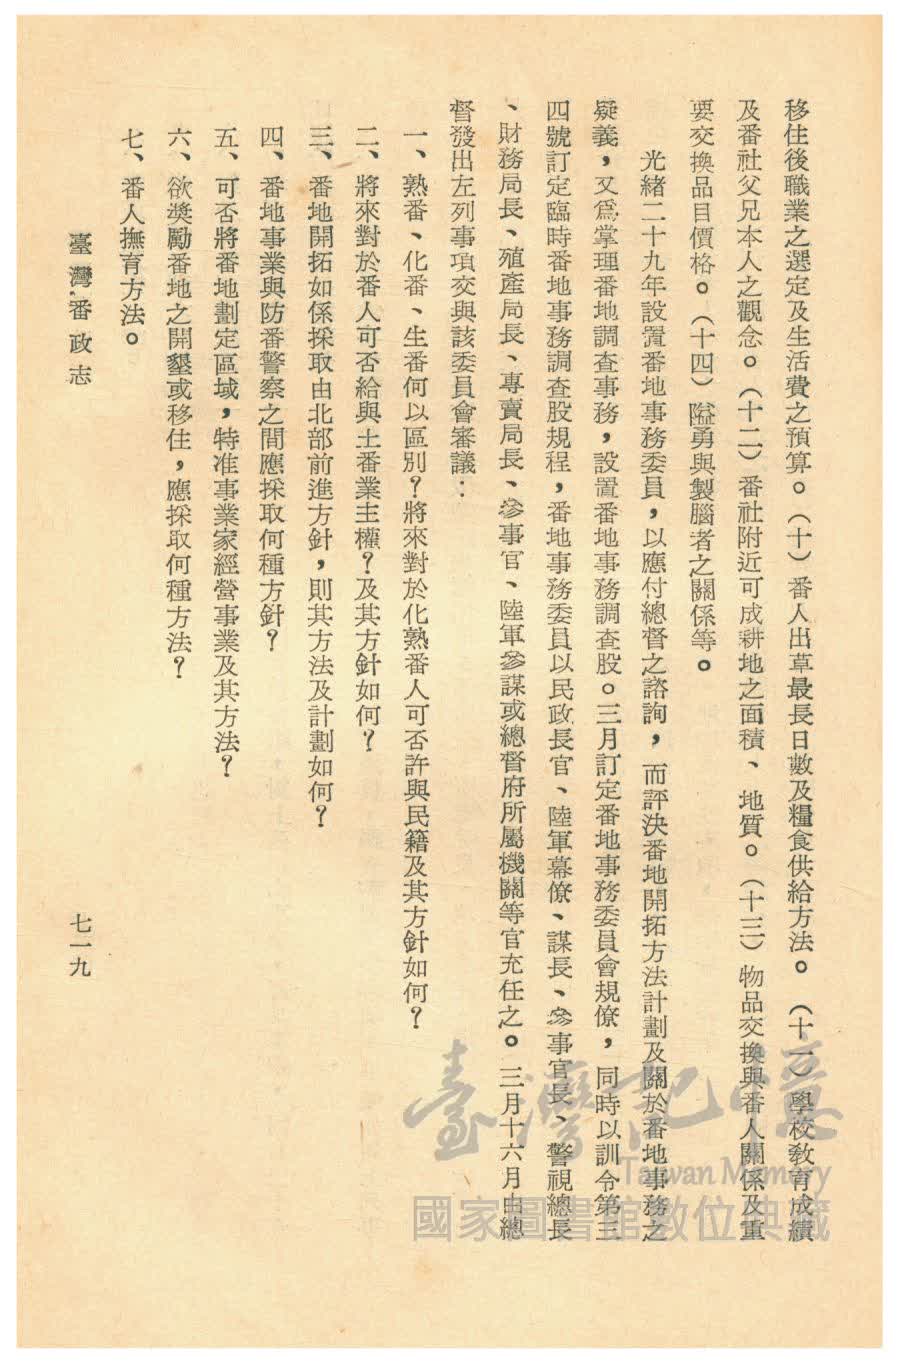 移住後職業之選定及生活費之預算。（十）番人出草最長日數及糧食供給方法。（十一）學校敎育成績
及番社父兄本人之觀念。（十二）番社附近可成耕地之面積、地質。（十三）物品交換與番人關係及重
要交換品目價格。（十四）隘勇與製腦者之關係等。
光緒二十九年設置番地事務委員，以應付總督之諮詢，而評決番地開拓方法計劃及關於番地事務之
疑義，又爲掌理番地調查事務，設置番地事務調查股。三月訂定番地事務委員會規僚，同時以訓令第三
四號訂定臨時番地事務調查股規程，番地事務委員以民政長官、陸軍幕僚、謀長、參事官長、警視總長
、財務局長、殖產局長、專賣局長、參事官、陸軍參謀或總督府所屬機關等官充任之。三月十六月由總
督發出左列事項交與該委員會審議：
一、熟番、化番、生番何以區別？將來對於化熟番人可否許與民籍及其方針如何？
二、將來對於番人可否給與土番業主權？及其方針如何？
三、番地開拓如係採取由北部前進方針，則其方法及計劃如何？
四、番地事業與防番警察之間應採取何種方針？
五、可否將番地劃定區域，特准事業家經營事業及其方法？
六、欲奬勵番地之開墾或移住，應採取何種方法？
七、番人撫育方法。
臺灣番政志
七一九
臺灣記憶
Taiwan Memory
國家圖書館數位典藏